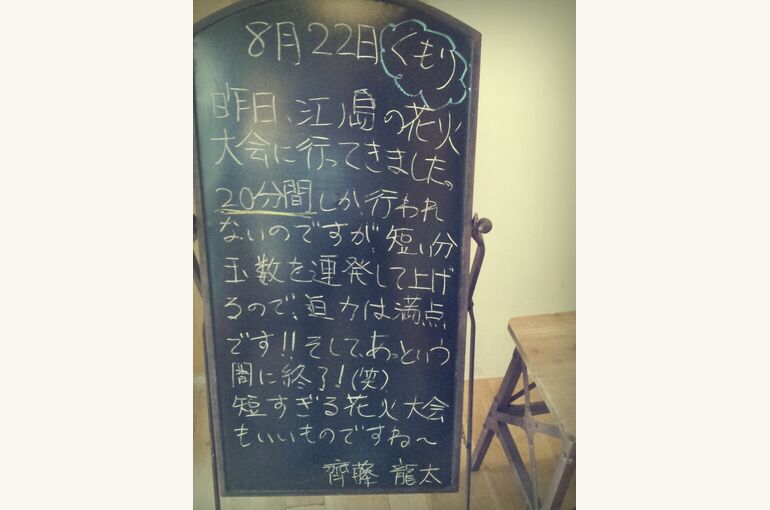 8月22日 くもり
昨日、江ノ島の花火
大会に行ってきました。
20分間しか行われ
ないのですが短い分
玉数を連発して上げ
るので、迫力は満点
です!!そして、あっという
間に終了!(笑)
短すぎる花火大会
もいいものですね〜
齊藤 龍太